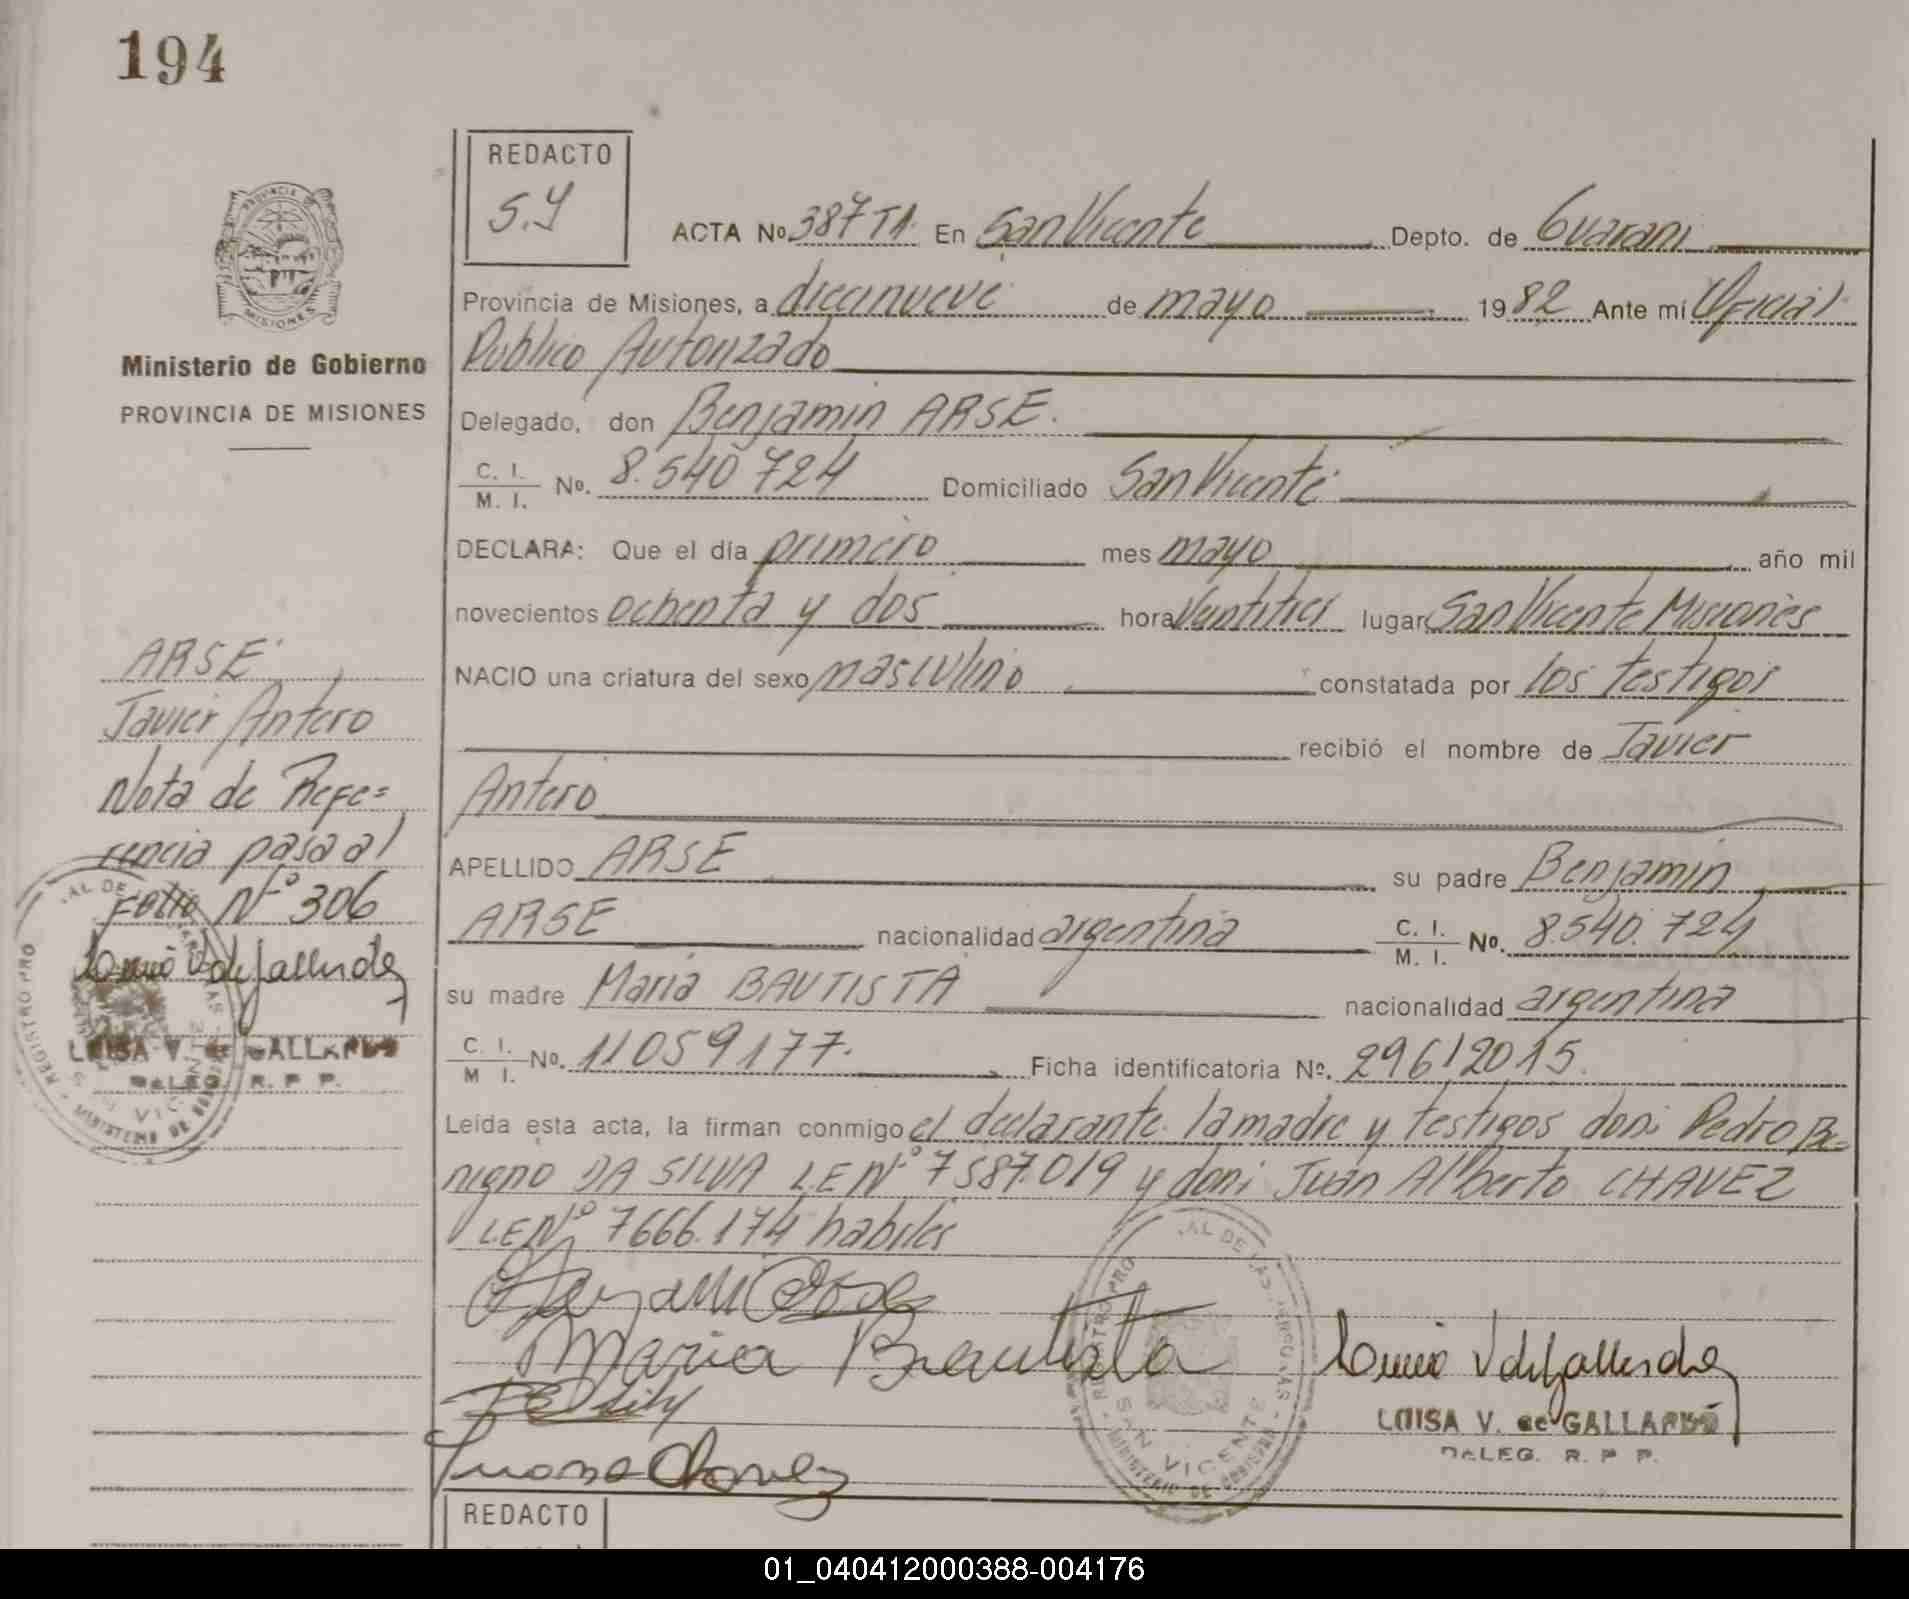 194
REDACTO
S.Y
ACTA Nº 387 TA. En San Vicente Depto. de Guarani
Provincia de Misiones, a diecinueve de mayo 1982 Ante mi Oficial
Publico Autorizado
Delegado, don Benjamin ARSE.
C. I. / M. I. Nº. 8.540 724 Domiciliado San Vicente
DECLARA: Que el día primero mes mayo año mil
novecientos ochenta y dos hora veintitres lugar San Vicente Misiones
NACIO una criatura del sexo masculino constatada por los testigos
recibió el nombre de Javier
Antero
APELLIDO ARSE su padre Benjamin
ARSE nacionalidad argentina C. I. / M. I. Nº. 8.540.724
su madre Maria BAUTISTA nacionalidad argentina
C. I. / M I. Nº. 11059177. Ficha identificatoria Nº. 29612015.
Leída esta acta, la firman conmigo el declarante. la madre y testigos don: Pedro Be=
nigno DA SILVA L.E Nº 7587.019 y don: Juan Alberto CHAVEZ
LE Nº 7666.174 habiles
Maria Bautista
LUISA V. de GALLARDO
DELEG. R. P P.
REGISTRO PRO AL DE LAS PERSONAS
SAN VICENTE
MINISTERIO DE GOBIERNO
REDACTO
PROVINCIA DE
MISIONES
Ministerio de Gobierno
PROVINCIA DE MISIONES
ARSE
Javier Antero
Nota de Refe=
rencia pasa al
Folio Nº 306
LUISA V. de GALLARDO
DELEG. R. P P.
01_040412000388-004176